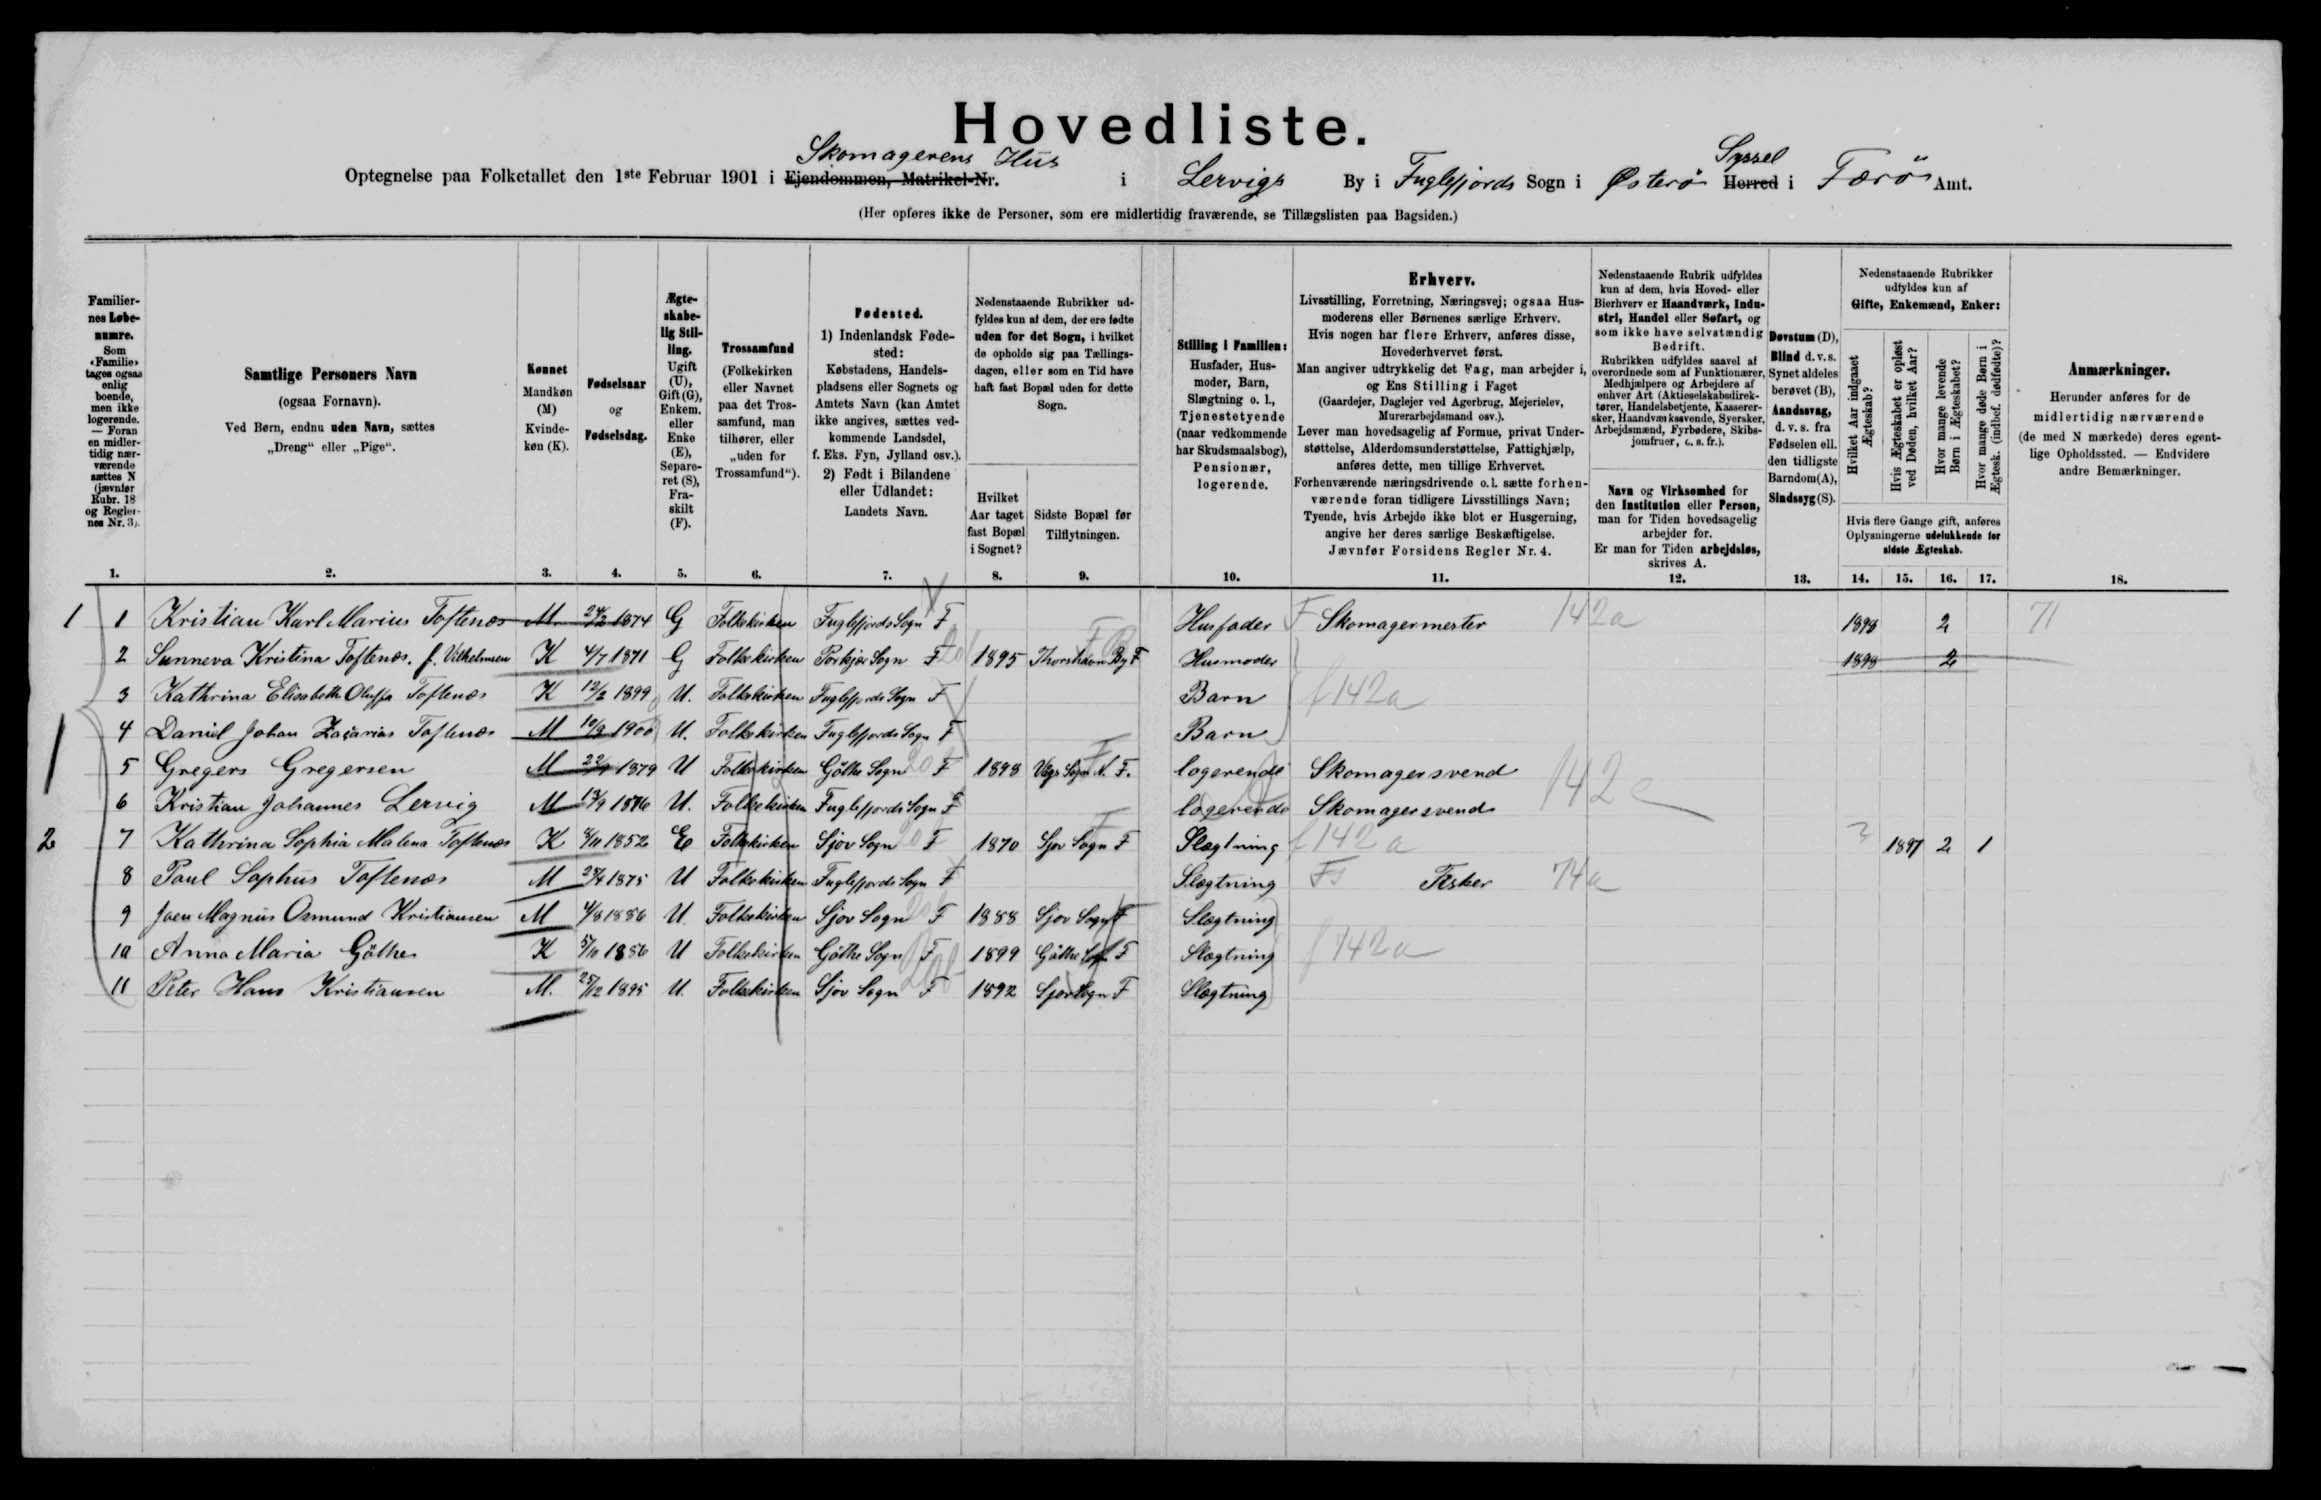 Hovedliste.
Skomagerens Hus
Syssel
Optegnelse paa Folketallet den 1ste Februar 1901 i Ejendommen, Matrikel-Nr. i Lervigs By i Fuglefjords Sogn i Østerø Herred i Færös Amt.
(Her opføres ikke de Personer, som ere midlertidig fraværende, se Tillægslisten paa Bagsiden.)
Familiernes Løbenumre.
Som «Familie» tages ogsaa enlig boende, men ikke logerende. — Foran en midlertidig nærværende sættes N (jævnfør Rubr. 18 og Reglernes Nr. 3).
Samtlige Personers Navn
(ogsaa Fornavn).
Ved Børn, endnu uden Navn, sættes
„Dreng“ eller „Pige“.
Kønnet
Mandkøn (M)
Kvindekøn (K).
Fødselsaar
og
Fødselsdag.
Ægteskabelig Stilling.
Ugift (U), Gift (G), Enkem. eller Enke (E), Separeret (S), Fraskilt (F).
Trossamfund
(Folkekirken eller Navnet paa det Trossamfund, man tilhører, eller „uden for Trossamfund“).
Fødested.
1) Indenlandsk Fødested:
Købstadens, Handelspladsens eller Sognets og Amtets Navn (kan Amtet ikke angives, sættes vedkommende Landsdel, f. Eks. Fyn, Jylland osv.).
2) Født i Bilandene eller Udlandet:
Landets Navn.
Nedenstaaende Rubrikker udfyldes kun af dem, der ere fødte uden for det Sogn, i hvilket de opholde sig paa Tællingsdagen, eller som en Tid have haft fast Bopæl uden for dette Sogn.
Hvilket Aar taget fast Bopæl i Sognet?
Sidste Bopæl før Tilflytningen.
Stilling i Familien:
Husfader, Husmoder, Barn, Slægtning o. l., Tjenestetyende (naar vedkommende har Skudsmaalsbog), Pensionær, logerende.
Erhverv.
Livsstilling, Forretning, Næringsvej; ogsaa Husmoderens eller Børnenes særlige Erhverv.
Hvis nogen har flere Erhverv, anføres disse, Hovederhvervet først.
Man angiver udtrykkelig det Fag, man arbejder i, og Ens Stilling i Faget
(Gaardejer, Daglejer ved Agerbrug, Mejerielev, Murerarbejdsmand osv.).
Lever man hovedsagelig af Formue, privat Understøttelse, Alderdomsunderstøttelse, Fattighjælp, anføres dette, men tillige Erhvervet.
Forhenværende næringsdrivende o. l. sætte forhenværende foran tidligere Livsstillings Navn; Tyende, hvis Arbejde ikke blot er Husgerning, angive her deres særlige Beskæftigelse.
Jævnfør Forsidens Regler Nr. 4.
Nedenstaaende Rubrik udfyldes kun af dem, hvis Hoved- eller Bierhverv er Haandværk, Industri, Handel eller Søfart, og som ikke have selvstændig Bedrift.
Rubrikken udfyldes saavel af overordnede som af Funktionærer, Medhjælpere og Arbejdere af enhver Art (Aktieselskabsdirektører, Handelsbetjente, Kasserersker, Haandværkssvende, Syersker, Arbejdsmænd, Fyrbødere, Skibsjomfruer, o. s. fr.).
Navn og Virksomhed for den Institution eller Person, man for Tiden hovedsagelig arbejder for.
Er man for Tiden arbejdsløs, skrives A.
Døvstum (D),
Blind d. v. s. Synet aldeles berøvet (B),
Aandssvag, d. v. s. fra Fødselen ell. den tidligste Barndom (A),
Sindssyg (S).
Nedenstaaende Rubrikker udfyldes kun af
Gifte, Enkemænd, Enker:
Hvilket Aar indgaaet Ægteskab?
Hvis Ægteskabet er opløst ved Døden, hvilket Aar?
Hvor mange levende Børn i Ægteskabet?
Hvor mange døde Børn i Ægtesk. (indbef. dødfødte)?
Hvis flere Gange gift, anføres Oplysningerne udelukkende for sidste Ægteskab.
Anmærkninger.
Herunder anføres for de midlertidig nærværende (de med N mærkede) deres egentlige Opholdssted. — Endvidere andre Bemærkninger.
1. 2. 3. 4. 5. 6. 7. 8. 9. 10. 11. 12. 13. 14. 15. 16. 17. 18.
1 1 Kristian Karl Marius Toftenæs M 24/2 1874 G Folkekirken Fuglefjords Sogn F Husfader F Skomagermester 142a 1898 2 71
2 Sunneva Kristina Toftenæs. f. Vilhelmsen K 4/7 1871 G Folkekirken Porkjer Sogn F 1895 Thorshavn By F Husmoder 1898 2
3 Kathrina Elisabeth Oluffa Toftenæs K 12/2 1899 U. Folkekirken Fuglefjords Sogn F Barn f 142a
4 Daniel Johan Zacarias Toftenæs M 10/9 1900 U. Folkekirken Fuglefjords Sogn F Barn
5 Gregers Gregersen M 1879 U Folkekirken Göthe Sogn F 1898 Vags Sogn N. F. logerende Skomagersvend
6 Kristian Johannes Lervig M 13/9 1876 U. Folkekirken Fuglefjords Sogn F logerende Skomagersvend 142c
2 7 Kathrina Sophia Malena Toftenæs K 1852 E Folkekirken Sjov Sogn F 1870 Sjov Sogn F Slægtning f 142a ? 1897 2 1
8 Poul Sophus Toftenæs M 1875 U Folkekirken Fuglefjords Sogn F Slægtning Fs Fisker 74a
9 Joen Magnus Osmund Kristiansen M 4/8 1886 U. Folkekirken Sjov Sogn F 1888 Sjov Sogn F Slægtning
10 Anna Maria Göthe K 5/11 1886 U Folkekirken Göthe Sogn F 1899 Göthe Sogn F Slægtning f 142a
11 Peter Hans Kristiansen M. 25/12 1895 U. Folkekirken Sjov Sogn F 1892 Sjov Sogn F Slægtning